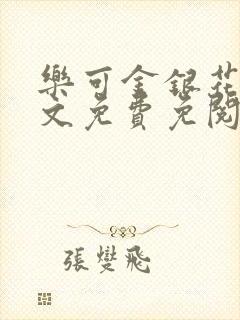 樂可金銀花
文免費免閱
張燮飛